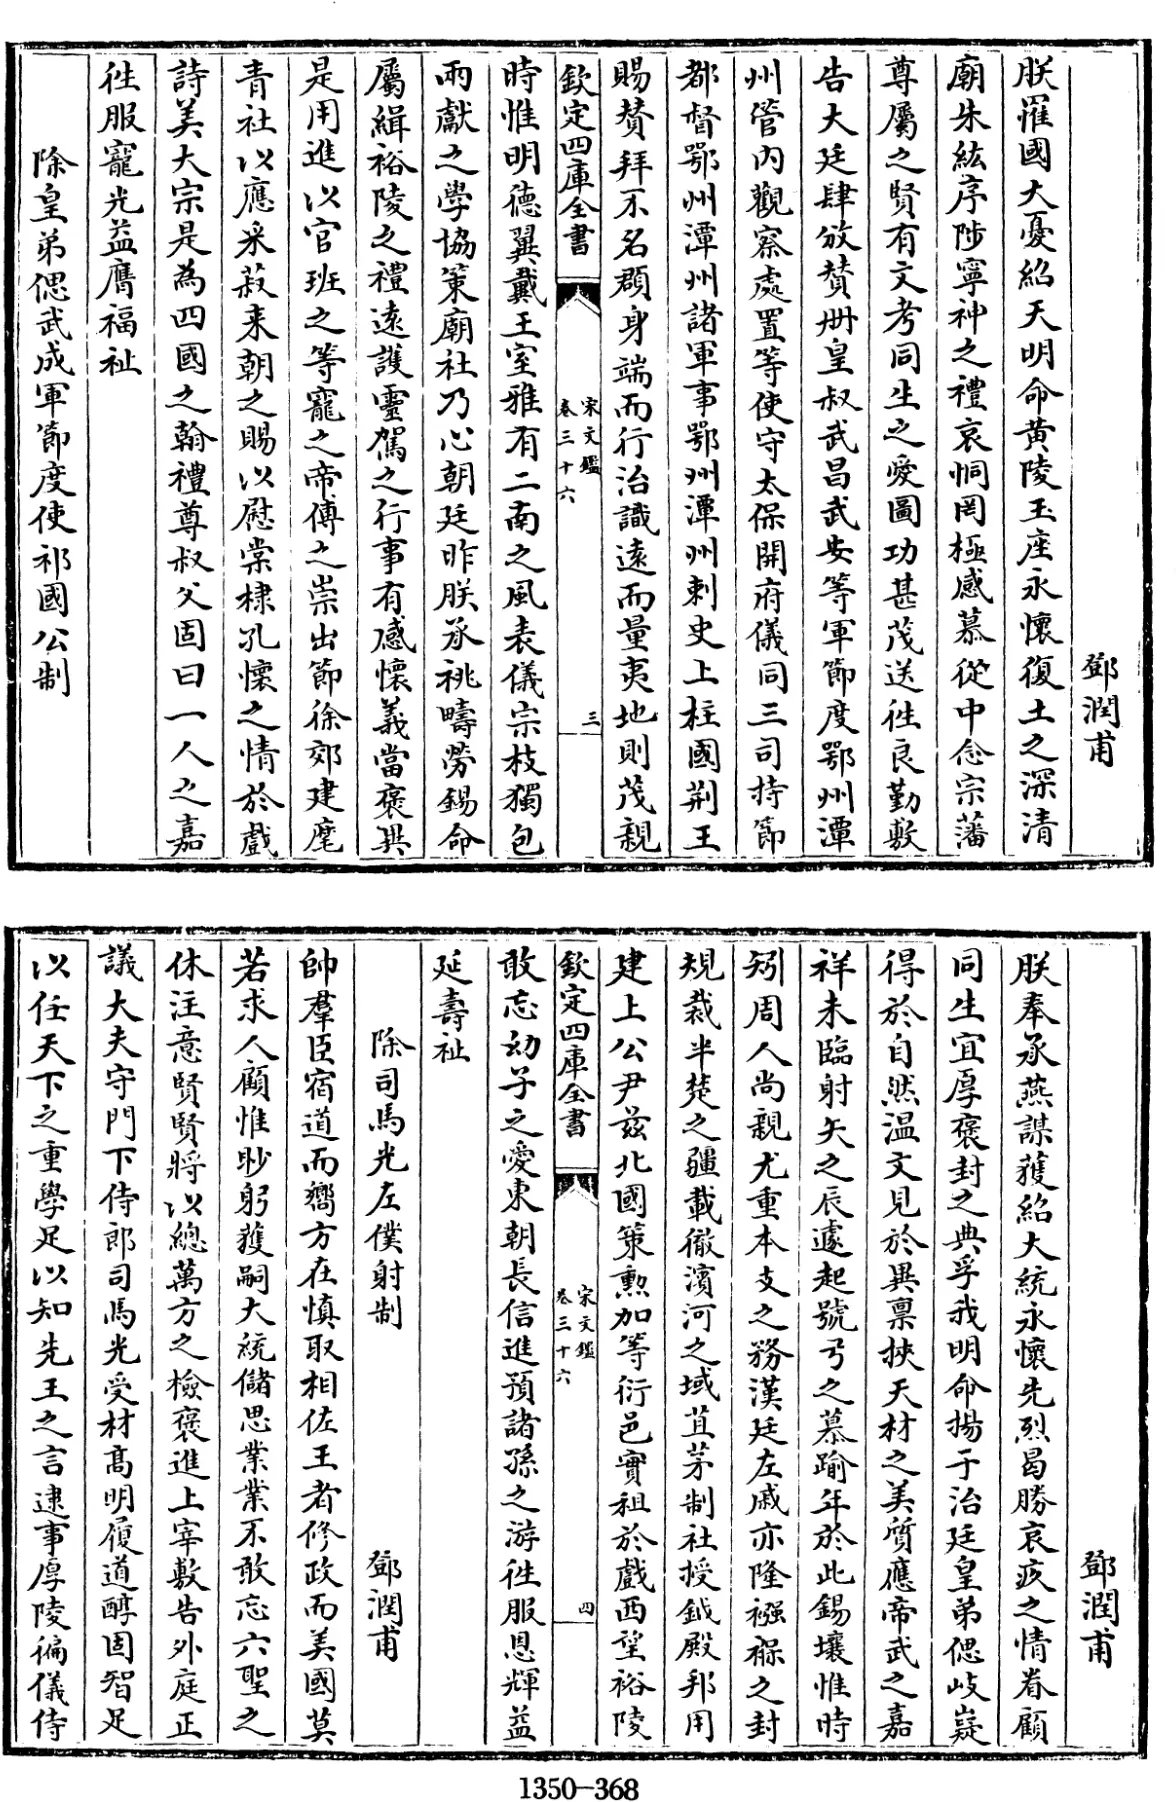 鄧潤甫
朕罹國大憂紹天明命黄陵玉座永懷復土之深清
廟朱絃序陟寧神之禮哀恫罔極感慕從中念宗藩
尊屬之賢有文考同生之愛圖功甚茂送徃良勤敷
告大廷肆放贊冊皇叔武昌武安等軍節度鄂州潭
州管内觀察處置等使守太保開府儀同三司持節
都督鄂州潭州諸軍事鄂州潭州刺史上柱國荆王
賜贊拜不名頵身端而行治識逺而量夷地則茂親
欽定四庫全書
宋文鑑
卷三十六
三
時惟明德翼戴王室雅有二南之風表儀宗枝獨包
兩獻之學協策廟社乃心朝廷昨朕承祧疇勞錫命
屬緝裕陵之禮逺護靈駕之行事有感懷義當褒異
是用進以官班之等寵之帝傅之崇出節徐郊建麾
青社以應采菽来朝之賜以慰棠棣孔懷之情於戲
詩美大宗是為四國之翰禮尊叔父固曰一人之嘉
徃服寵光益膺福祉
除皇弟偲武成軍節度使祁國公制
鄧潤甫
朕奉承燕謀獲紹大統永懷先烈曷勝哀疚之情眷顧
同生宜厚褒封之典孚我明命揚于治廷皇弟偲岐嶷
得於自然温文見於異禀挾天材之美質應帝武之嘉
祥未臨射矢之辰遽起號弓之慕踰年於此錫壤惟時
矧周人尚親尤重本支之務漢廷左戚亦隆襁褓之封
規裁半楚之疆載徹濱河之域苴茅制社授鉞殿邦用
建上公尹兹北國策勲加等衍邑實租於戲西望裕陵
欽定四庫全書
宋文鑑
卷三十六
四
敢忘幼子之愛東朝長信進預諸孫之游徃服恩輝益
延壽祉
除司馬光左僕射制
鄧潤甫
帥羣臣宿道而嚮方在慎取相佐王者修政而美國莫
若求人顧惟眇躬獲嗣大統儲思業業不敢忘六聖之
休注意賢賢將以總萬方之檢褒進上宰敷告外庭正
議大夫守門下侍郎司馬光受材髙明履道醇固智足
以任天下之重學足以知先王之言逮事厚陵徧儀侍
1350—368